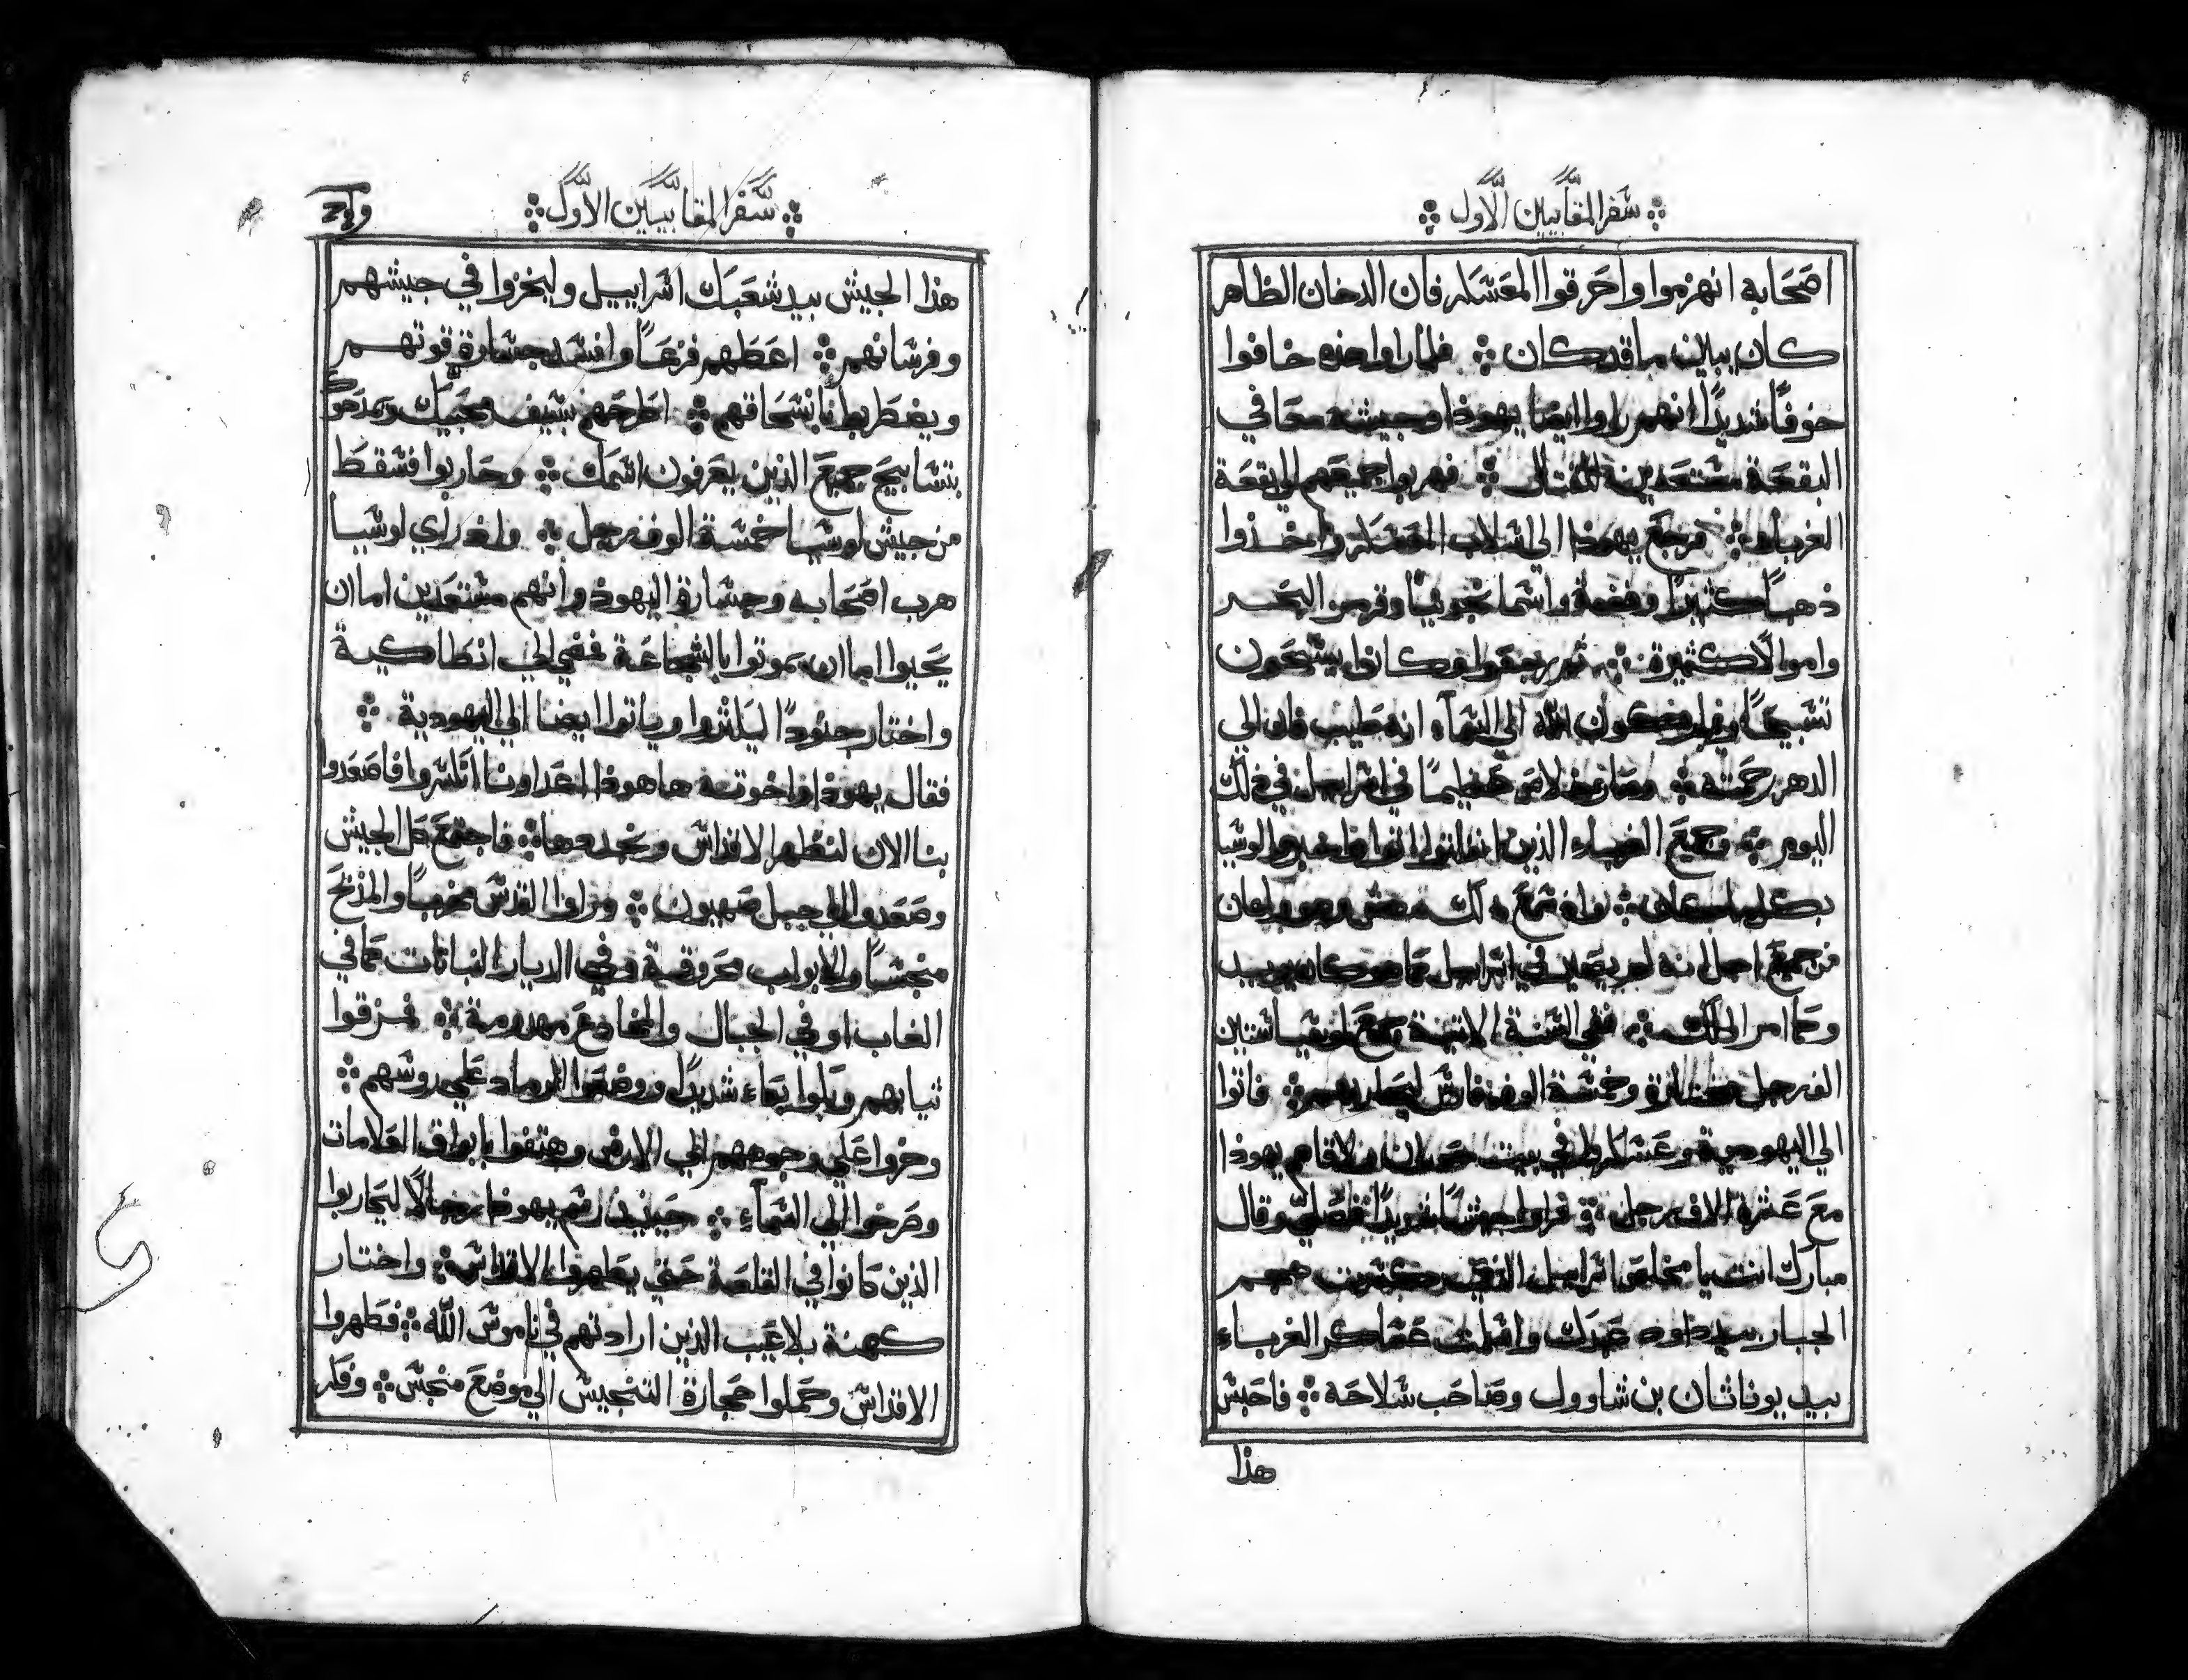 سفر المقابيين الاول
اصحابه انهزموا واحرقوا المعسكر فان الدخان الظاهر
كان يبين ما قد كان فلما راوا هذه خافوا
خوفًا شديدًا انهم راوا ايضا يهوذا وجيشه معا في
البقعة مستعدين للقتال فهربوا جميعهم الي بقعة
الغرباء فرجع يهوذا الي اسلاب المعسكر واخذوا
ذهبًا كثيرًا وفضة واسمانجونيًا وقرمز البحر
واموالًا كثيرة ثم رجعوا وكانوا يسبحون
تسبيحًا ويباركون الله الي السماء انه طيب فان الي
الدهر رحمته وصار خلاص عظيمًا في اسراييل في ذلك
اليوم وجميع الغرباء الذين انفلتوا اتوا واخبروا لوسيا
بكل ما كان واذ سمع ذلك
من جميع اجل انه لم يصير في اسراييل كما هو كان يريد
وكما امر الملك ففي السنة الاتية جمع لوسيا ستين
الف رجل مختارة وخمسة الوف فارس ليحاربهم فاتوا
الي اليهودية وعسكروا في بيت حوران ولاقاهم يهوذا
مع عشرة الاف رجل فراوا جيشًا شديدًا فصلي وقال
مبارك انت يا مخلص اسراييل الذي كسرت هجم
الجبار بيد داود عبدك واسلمت عساكر الغرباء
بيد يوناثان بن شاوول وصاحب سلاحه فاحبس
هذا
سفر المقابيين الاول
هذا الجيش بيد شعبك اسراييل وليخزوا في جيشهم
وفرسانهم اعطهم فزعًا وافسد جسارة قوتهم
ويضطربوا بانسحاقهم اطرحهم بسيف محبيك ويمدحوك
بتسابيح جميع الذين يعرفون اسمك وحاربوا فسقط
من جيش لوسيا خمسة الوف رجل واذ راي لوسيا
هرب اصحابه وجسارة اليهود وانهم مستعدين اما ان
يحيوا اما ان يموتوا بالشجاعة فمضي الي انطاكية
واختار جنودًا ليكثروا وياتوا ايضا الي اليهودية
فقال يهوذا واخوته ها هوذا اعداونا انكسروا فاصعدوا
بنا الان لنطهر الاقداس ونجددها فاجتمع كل الجيش
وصعدوا الي جبل صهيون وراوا القدس مخربًا والمذبح
منجسًا والابواب محروقة وفي الديار النباتات كما في
الغاب او في الجبال والمخادع مهدومة فمزقوا
ثيابهم وبكوا بكاء شديدًا ووضعوا الرماد علي روسهم
وخروا علي وجوههم الي الارض وهتفوا بابواق العلامات
وصرخوا الي السماء حينيذ رسم يهوذا رجالًا ليحاربوا
الذين كانوا في القلعة حتي يطهروا الاقداس واختار
كهنة بلا عيب الذين ارادتهم في ناموس الله فطهروا
الاقداس وحملوا حجارة التنجيس الي موضع منجس وفكر